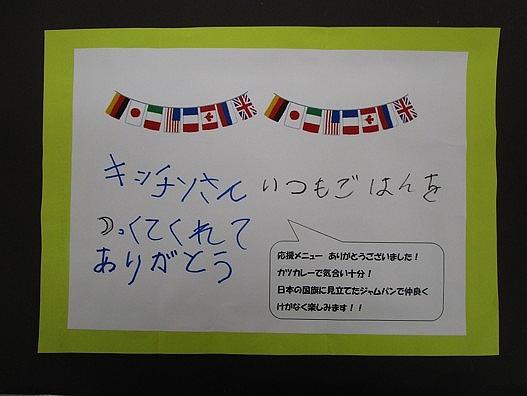 キッチンさん いつもごはんを
つくてくれて
ありがとう
応援メニュー ありがとうございました！
カツカレーで気合い十分！
日本の国旗に見立てたジャムパンで仲良く
けがなく楽しみます！！